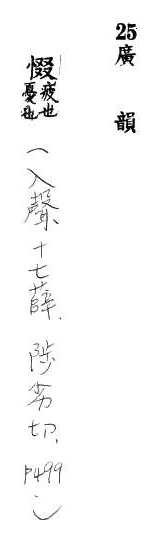 25廣韻
惙疲也憂也(入聲、十七薛.陟劣切.P499)